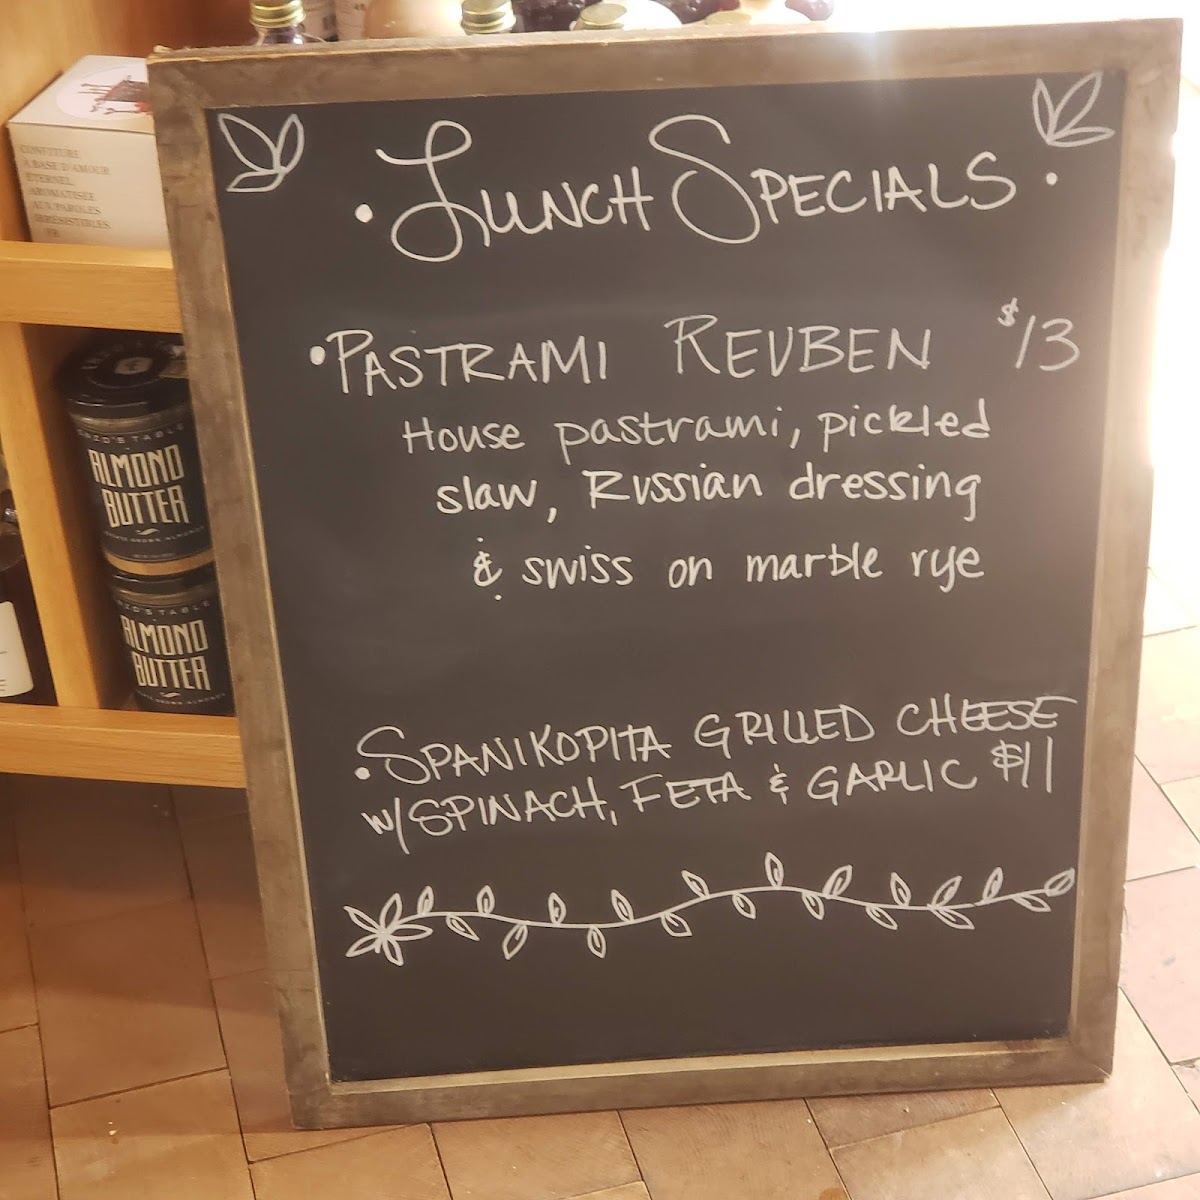 CONFITURE
À BASE D'AMOUR
ÉTERNEL,
AROMATISÉE
AUX PAROLES
IRRÉSISTIBLES
• LUNCH SPECIALS •
• PASTRAMI REUBEN $13
House pastrami, pickled
slaw, Russian dressing
& swiss on marble rye
• SPANIKOPITA GRILLED CHEESE
W/SPINACH, FETA & GARLIC $11
TABLE
ALMOND
BUTTER
TABLE
ALMOND
BUTTER